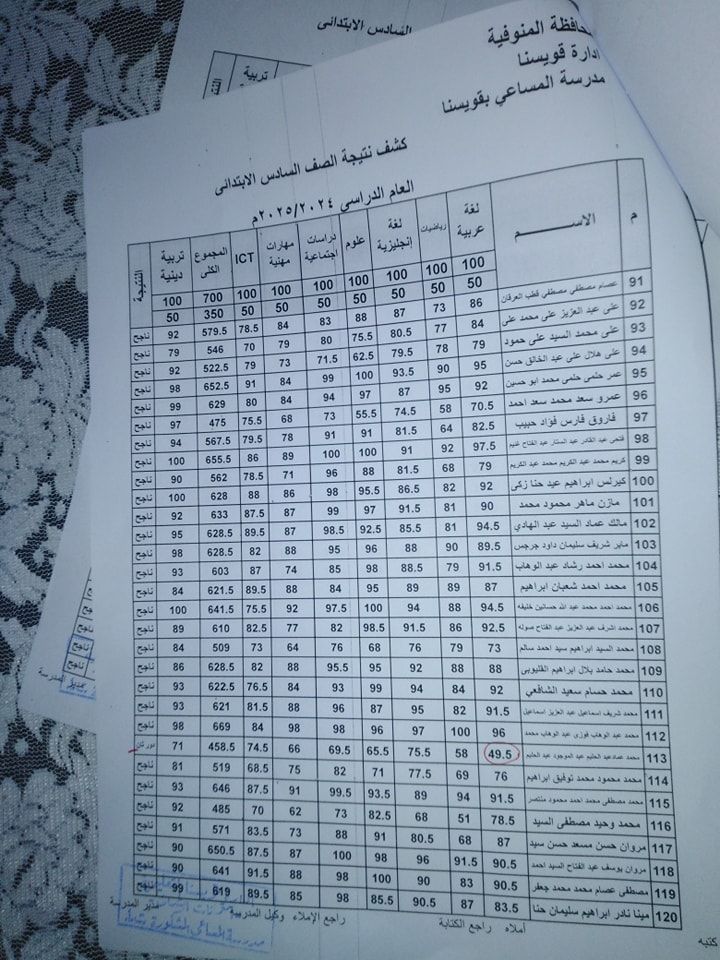 السادس الابتدائى
تربية دينية
حافظة المنوفية
إدارة قويسنا
مدرسة المساعي بقويسنا
كشف نتيجة الصف السادس الابتدائى
العام الدراسي ٢٠٢٥/٢٠٢٤م
م الاســـم لغة عربية رياضيات لغة إنجليزية علوم دراسات اجتماعية مهارات مهنية ICT المجموع الكلى تربية دينية النتيجة
100 100 100 100 100 100 100 700 100
50 50 50 50 50 50 50 350 50
91 عصام مصطفي مصطفي قطب العرقان 86 73 87 88 83 84 78.5 579.5 92 ناجح
92 على عبد العزيز على محمد على 84 77 80.5 75.5 80 79 70 546 79 ناجح
93 على محمد السيد على حمود 79 78 79.5 62.5 71.5 73 79 522.5 92 ناجح
94 على هلال على عبد الخالق حسن 95 90 93.5 100 99 84 91 652.5 98 ناجح
95 عمر حلمى حلمى محمد ابو حسين 92 95 87 97 94 84 80 629 99 ناجح
96 عمرو سعد محمد سعد احمد 70.5 58 74.5 55.5 73 68 75.5 475 97 ناجح
97 فاروق فارس فؤاد حبيب 82.5 64 81.5 91 91 78 79.5 567.5 94 ناجح
98 فتحى عبد القادر عبد الستار عبد الفتاح غنيم 97.5 92 91 100 100 89 86 655.5 100 ناجح
99 كريم محمد عبد الكريم محمد عبد الكريم 79 68 81.5 88 96 71 78.5 562 90 ناجح
100 كيرلس ابراهيم عيد حنا زكى 92 82 86.5 95.5 98 86 88 628 100 ناجح
101 مازن ماهر محمود محمد 90 81 91.5 97 99 87 87.5 633 92 ناجح
102 مالك عماد السيد عبد الهادي 94.5 81 85.5 92.5 98.5 87 89.5 628.5 95 ناجح
103 ماير شريف سليمان داود جرجس 89.5 90 88 96 95 88 82 628.5 98 ناجح
104 محمد احمد رشاد عبد الوهاب 91.5 79 88.5 98 85 74 87 603 93 ناجح
105 محمد احمد شعبان ابراهيم 87 89 89 95 84 88 89.5 621.5 84 ناجح
106 محمد احمد محمد عبد الله حسانين خليفه 94.5 88 94 100 97.5 92 75.5 641.5 100 ناجح
107 محمد اشرف عبد العزيز عبد الفتاح صوله 92.5 86 91.5 98.5 82 77 82.5 610 89 ناجح
108 محمد السيد ابراهيم سيد احمد سالم 73 79 76 68 76 64 73 509 84 ناجح
109 محمد حامد بلال ابراهيم القليوبى 88 88 92 95 95.5 88 82 628.5 86 ناجح
110 محمد حسام سعيد الشافعي 92 84 94 99 93 84 76.5 622.5 93 ناجح
111 محمد شريف اسماعيل عبد العزيز اسماعيل 91.5 82 95 87 96 88 81.5 621 93 ناجح
112 محمد عبد الوهاب فوزى عبد الوهاب محمد 96 100 97 96 98 98 84 669 98 ناجح
113 محمد عمادعبد الحليم عبد الموجود عبد الحليم 49.5 58 75.5 65.5 69.5 66 74.5 458.5 71 دور ثان
114 محمد محمود محمد توفيق ابراهيم 76 69 77.5 71 82 75 68.5 519 81 ناجح
115 محمد مصطفى محمد احمد محمود منتصر 91.5 94 89 93.5 99.5 91 87.5 646 93 ناجح
116 محمد وحيد مصطفى السيد 78.5 51 68 82.5 73 62 70 485 92 ناجح
117 مروان حسن مسعد حسن سيد 87 68 80.5 91 88 73 83.5 571 91 ناجح
118 مروان يوسف عبد الفتاح السيد احمد 90.5 91.5 96 98 100 87 87.5 650.5 90 ناجح
119 مصطفى عصام محمد محمد جعفر 90.5 83 90 100 98 88 91.5 641 90 ناجح
120 مينا نادر ابراهيم سليمان حنا 83.5 87 90.5 85.5 98 85 89.5 619 99 ناجح
أملاه راجع الكتابة راجع الإملاء وكيل المدرسة مدير المدرسة
كتبه
مدير المدرسة